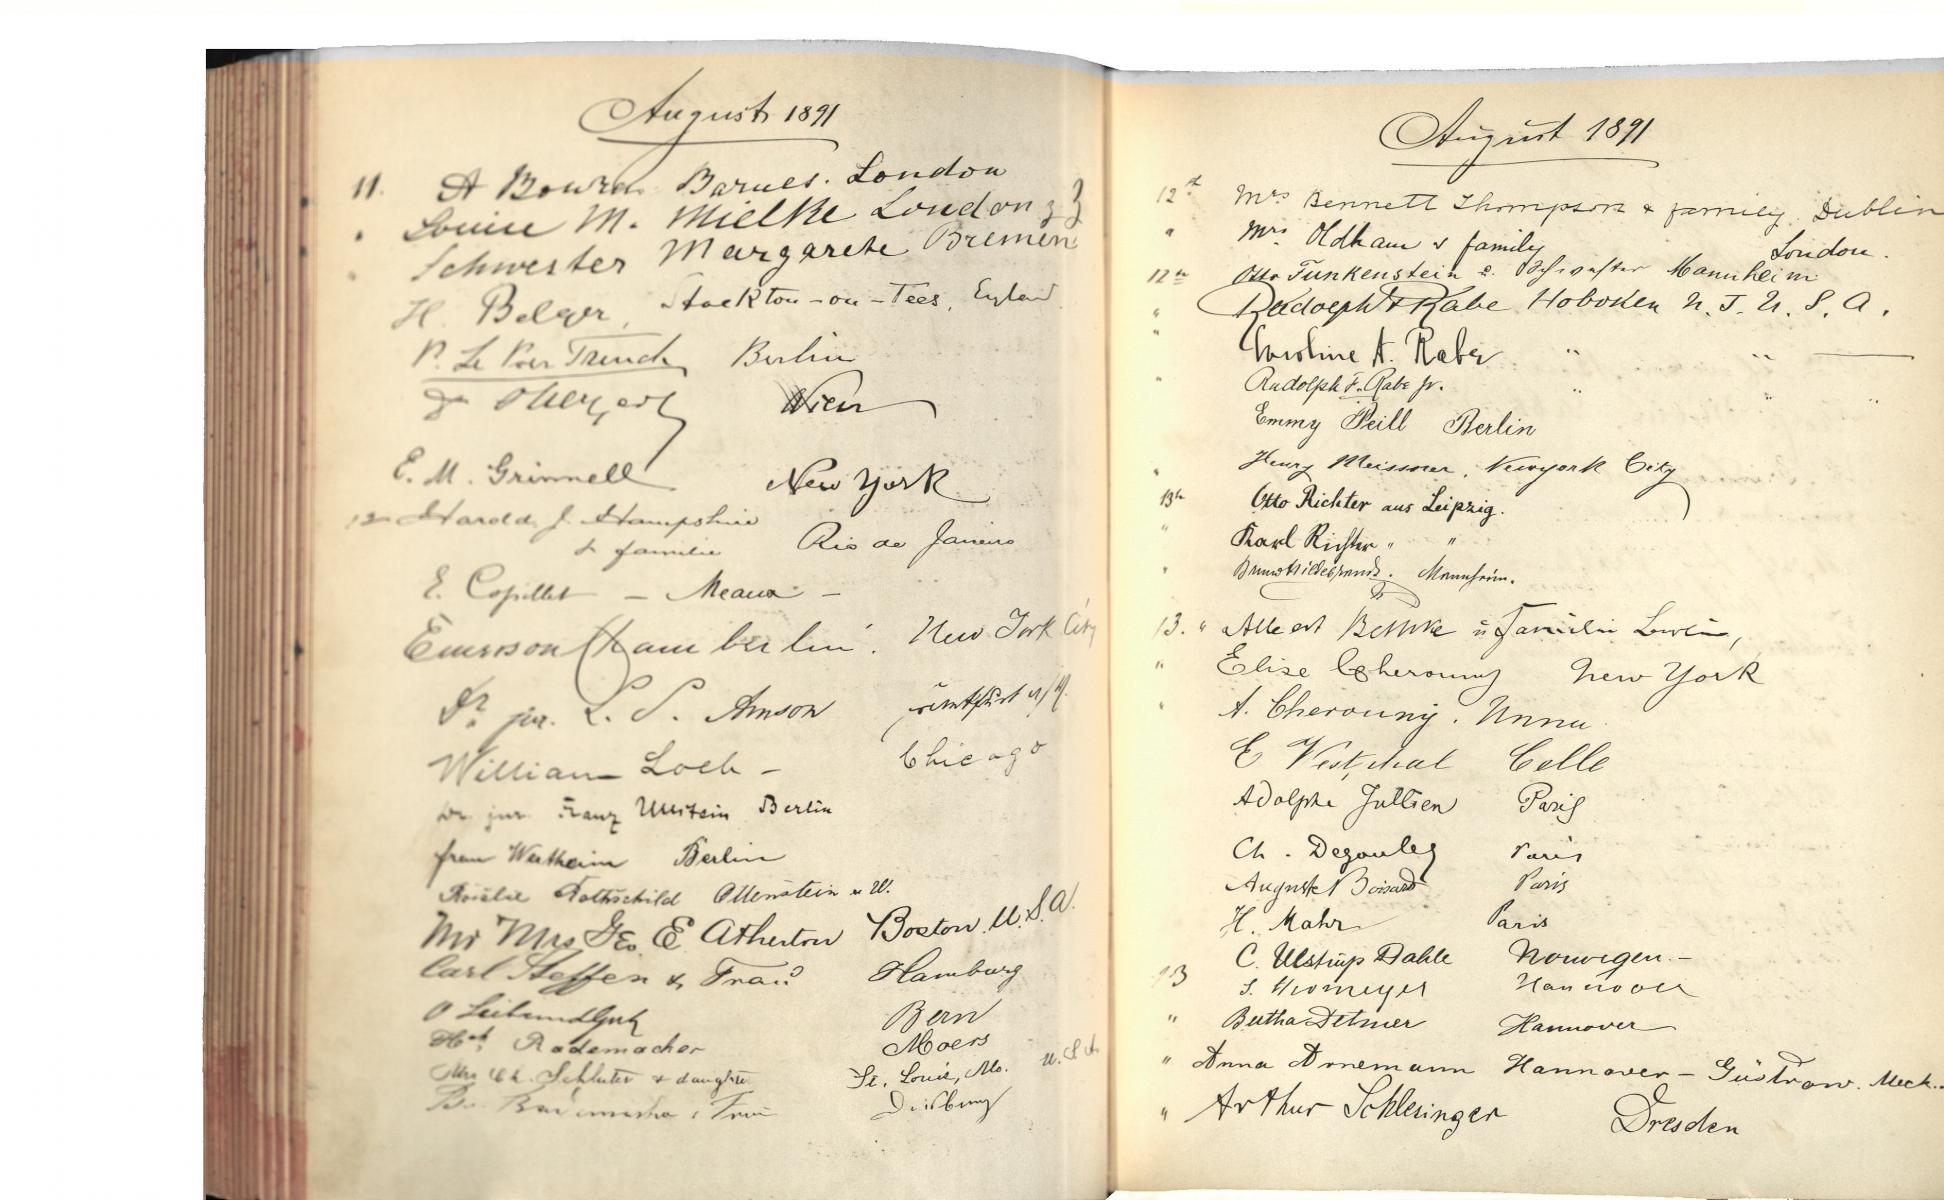 August 1891
11. A Bowra Barnes. London
" Louise M. Mielke London
" Schwester Margarete Bremen
H. Belger, Stockton-on-Tees, England
P. Le Poer Trench Berlin
Dr Wien
E. M. Grinnell New York
12 Harold J. Hampshire
& familie Rio de Janeiro
E. Copillet - Meaux -
Emerson Chamberlin. New York City
Dr. jur. L. S. Amson
William Loeb - Chicago
Dr. jur. Franz Ullstein Berlin
frau Wertheim Berlin
Rosalie Rothschild
Mr Mrs Geo E Atherton Boston U.S.A.
Carl Steffen & Frau Hamburg
O Leibundgut Bern
Hch Rademacher Moers
Mrs Ch. Schluter & daughter St. Louis, Mo. U.S.A.
Duisburg
August 1891
12th Mrs Bennett Thompson & family. Dublin
" Mrs Oldham & family London.
12th Otto Funkenstein Mannheim
" Rudolph F. Rabe Hoboken N. J. U. S. A.
" Caroline A. Rabe " "
" Rudolph F. Rabe jr. " " "
Emmy Peill Berlin
" Henry Meissner, Newyork City
13th Otto Richter aus Leipzig.
" Karl Richter " "
" Bruno Hildebrandt. Mannheim.
13. " Albert Bethke u Familie
" Elise Cherouny New York
" A. Cherouny. Unna
E Westphal Celle
Adolphe Jullien Paris
Ch. Paris
Auguste Boisard Paris
H. Mahr Paris
C. Ulstrup Dahle Norwegen. -
13 Hannover
" Bertha Detmer Hannover
" Anna Arnemann Hannover - Güstrow. Meck.
" Arthur Schlesinger Dresden